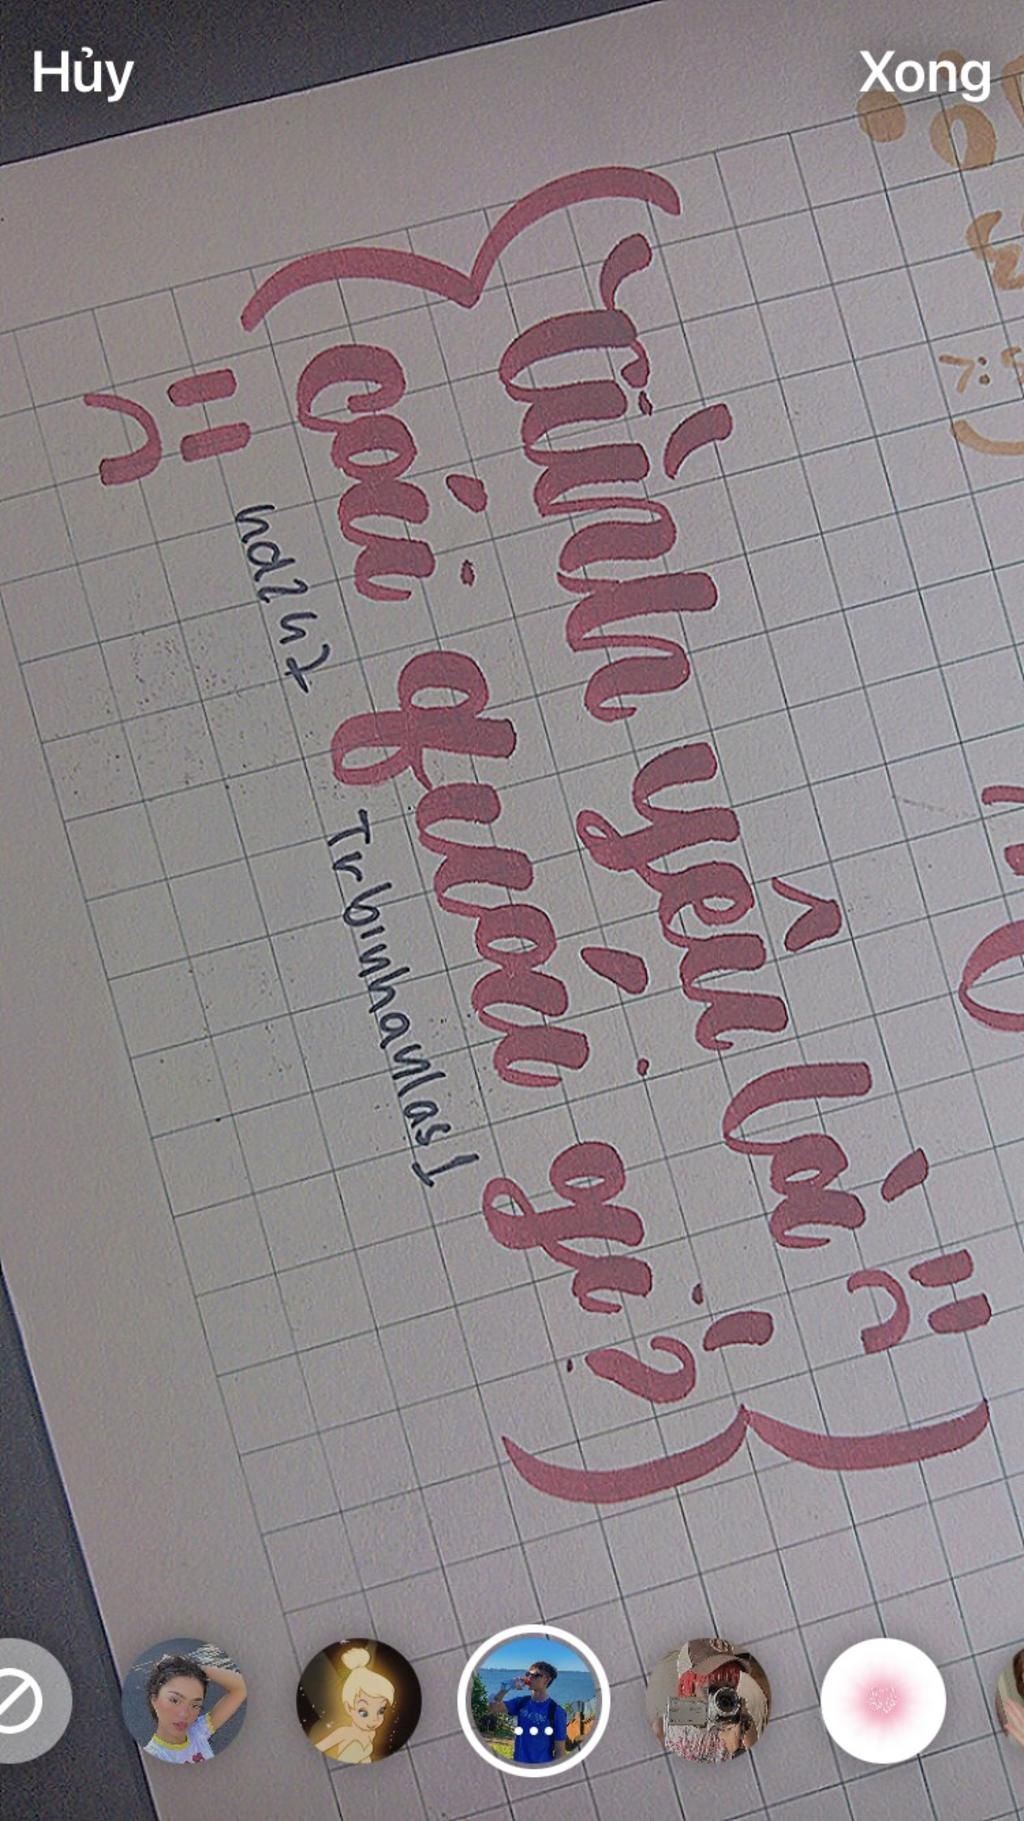 Hủy
Xong
Tình yêu là
cái quái gì?
nd2h7
Trbinhanlas1